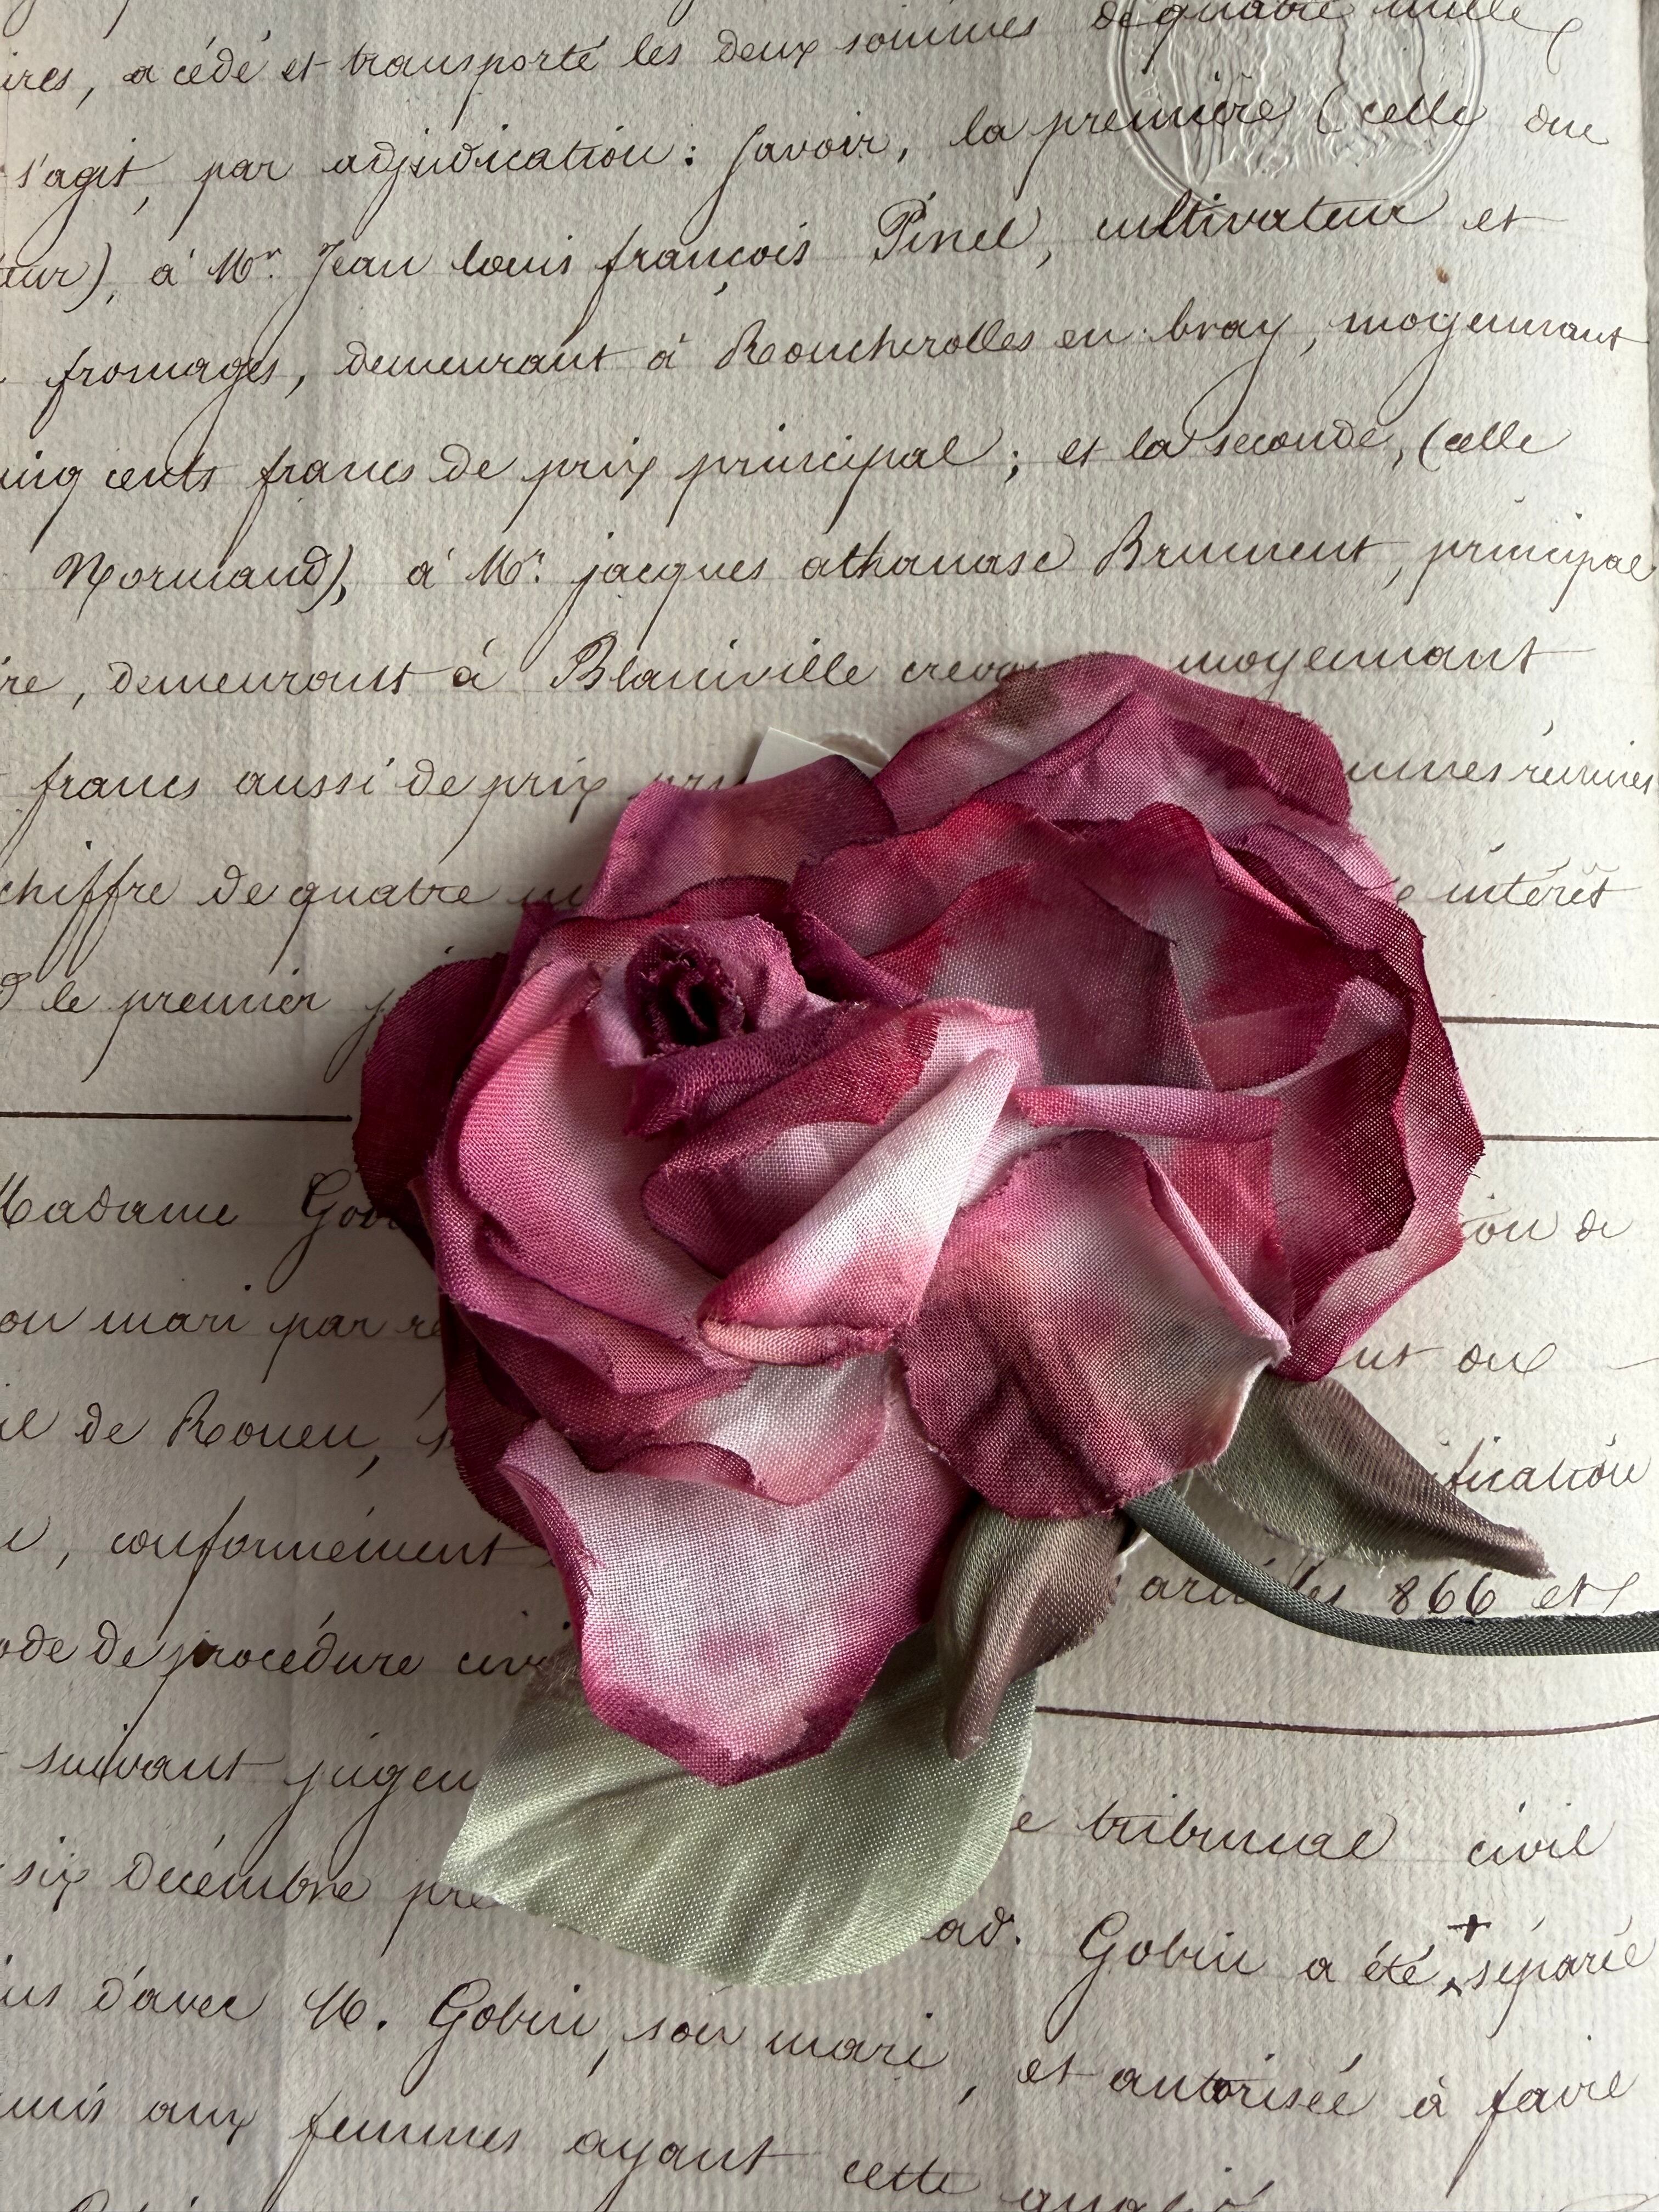 ires, a cédé et transporté les deux sommes de quatre mille
s'agit, par adjudication: savoir, la première (celle due
eur), à Mr. Jean louis françois Pinel, cultivateur et
fromages, demeurant à Roncherolles en bray, moyennant
inq cents francs de prix principal; et la seconde, (celle
Normand), à Mr. jacques athanase Brument, principal
re, demeurant à Blainville crevon moyennant
francs aussi de prix réunies
chiffre de quatre intérêt
le premier
Madame Gob
on mari par ion de
il de Rouen, ification
conformément articles 866 et
ode de procédure civi
suivant jugem tribunal civil
six décembre ad. Gobin a été séparée
ns d'avec M. Gobin, son mari, et autorisée à faire
mis aux femmes ayant cette qualité